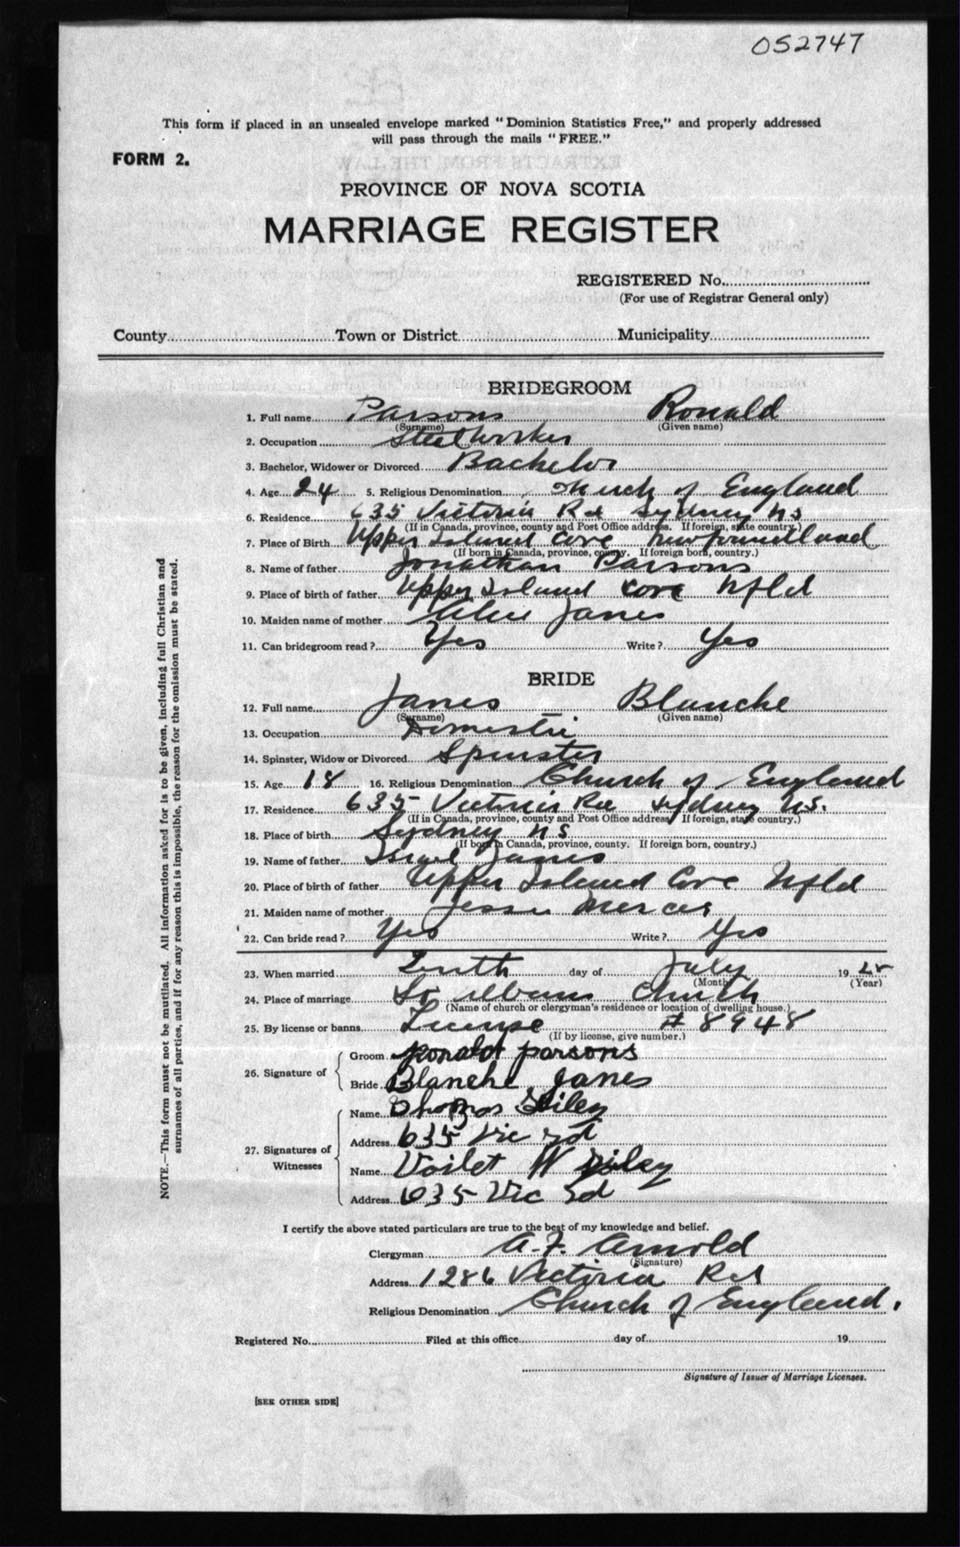 052747
This form if placed in an unsealed envelope marked "Dominion Statistics Free," and properly addressed
will pass through the mails "FREE."
FORM 2.
PROVINCE OF NOVA SCOTIA
MARRIAGE REGISTER
REGISTERED No.
(For use of Registrar General only)
County Town or District Municipality
BRIDEGROOM
1. Full name Parsons Ronald
(Surname) (Given name)
2. Occupation Steel Worker
3. Bachelor, Widower or Divorced Bachelor
4. Age 24 5. Religious Denomination Church of England
6. Residence 635 Victoria Rd Sydney NS
(If in Canada, province, county and Post Office address. If foreign, state country.)
7. Place of Birth Upper Island Cove Newfoundland
(If born in Canada, province, county. If foreign born, country.)
8. Name of father Jonathan Parsons
9. Place of birth of father Upper Island Cove Nfld
10. Maiden name of mother Janes
11. Can bridegroom read? Yes Write? Yes
BRIDE
12. Full name Janes Blanche
(Surname) (Given name)
13. Occupation Domestic
14. Spinster, Widow or Divorced Spinster
15. Age 18 16. Religious Denomination Church of England
17. Residence 635 Victoria Rd Sydney N.S.
(If in Canada, province, county and Post Office address. If foreign, state country.)
18. Place of birth Sydney NS
(If born in Canada, province, county. If foreign born, country.)
19. Name of father Israel Janes
20. Place of birth of father Upper Island Cove Nfld
21. Maiden name of mother Jessie Mercer
22. Can bride read? Yes Write? Yes
23. When married Tenth day of July 19
(Month) (Year)
24. Place of marriage St Albans Church
(Name of church or clergyman's residence or location of dwelling house.)
25. By license or banns License # 8948
(If by license, give number.)
26. Signature of
Groom Ronald parsons
Bride Blanche Janes
27. Signatures of Witnesses
Name
Address 635 Vic rd
Name Voilet W
Address 635 Vic rd
I certify the above stated particulars are true to the best of my knowledge and belief.
Clergyman A. F. Arnold
(Signature)
Address 1286 Victoria Rd
Religious Denomination Church of England.
Registered No. Filed at this office day of 19
Signature of Issuer of Marriage Licenses.
[SEE OTHER SIDE]
NOTE.—This form must not be mutilated. All information asked for is to be given, including full Christian and
surnames of all parties, and if for any reason this is impossible, the reason for the omission must be stated.